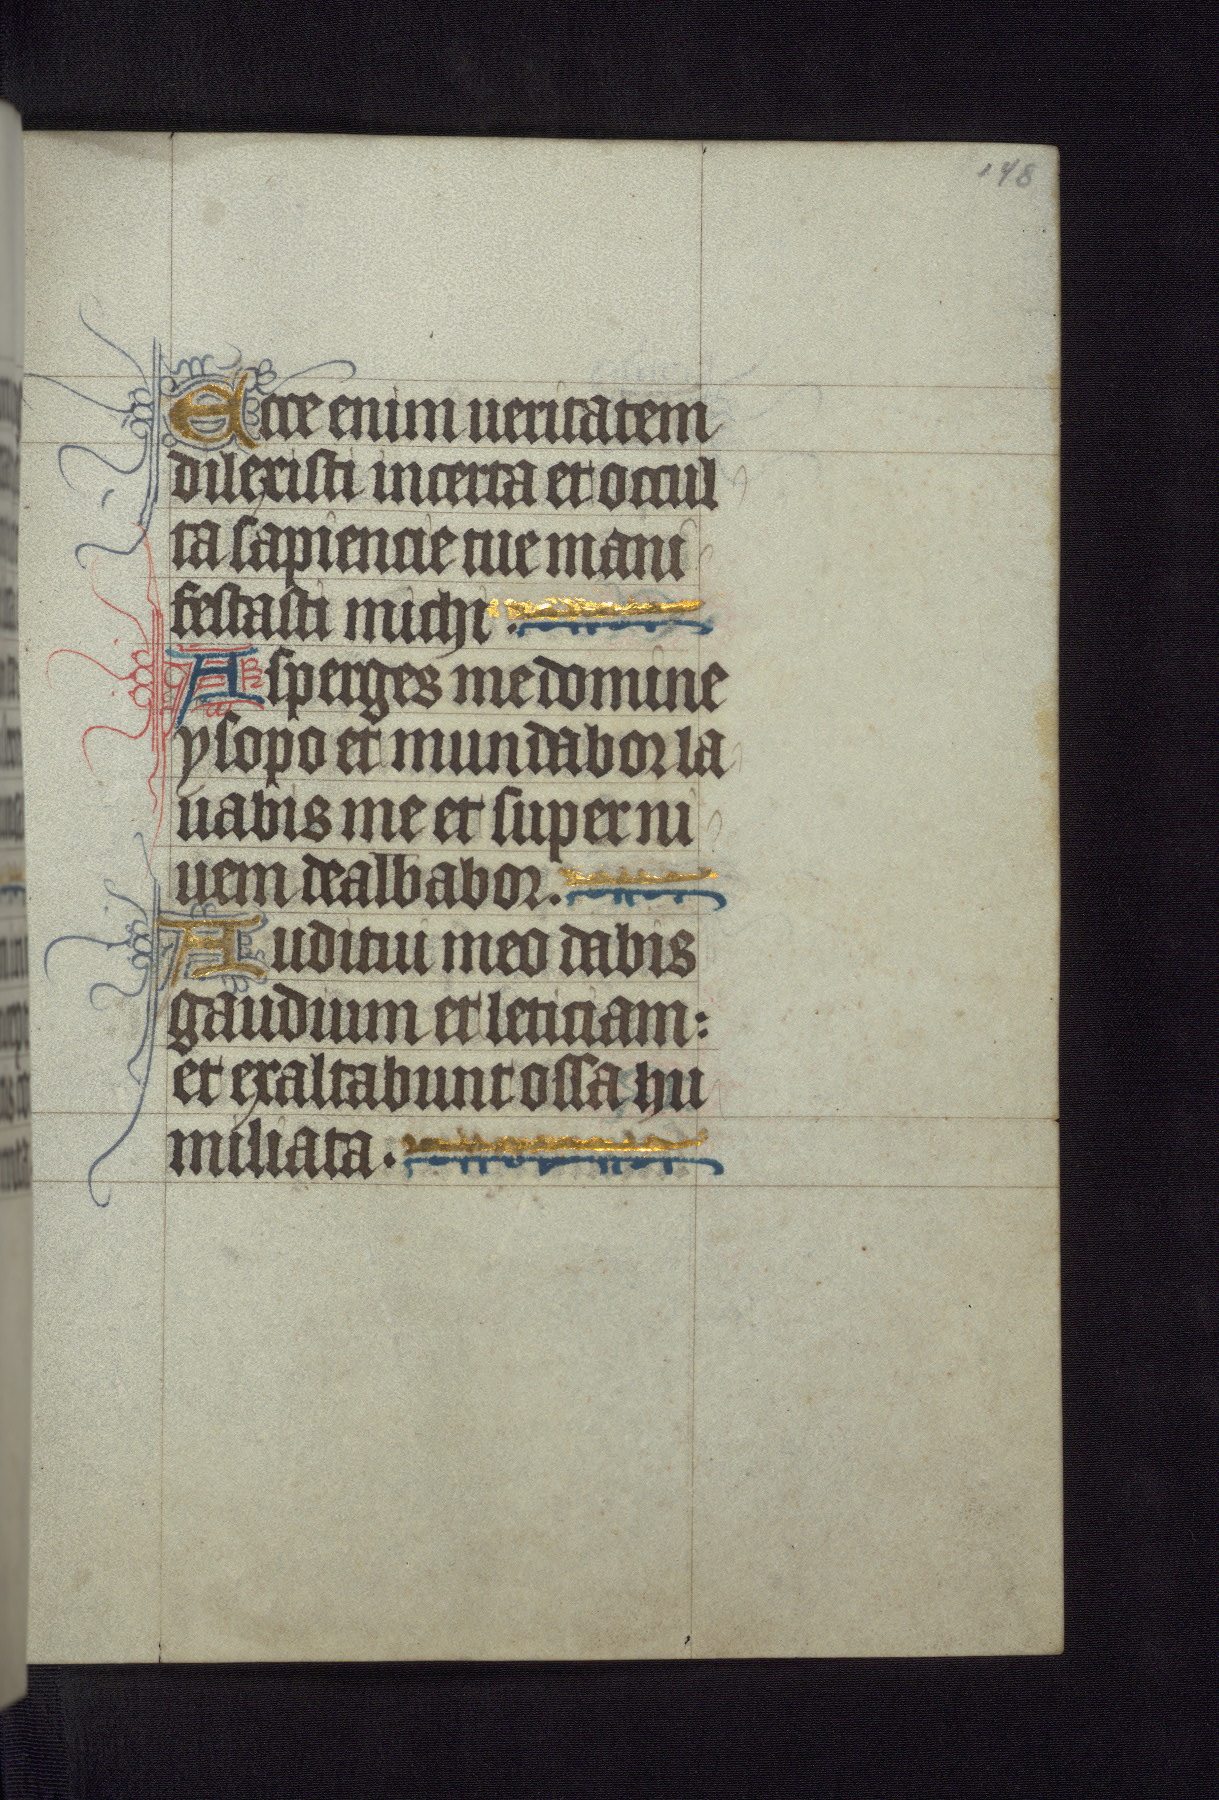 148
Ecce enim ueritatem
dilexisti incerta et occul
ta sapiencie tue mani
festasti michi.
Asperges me domine
ysopo et mundabor la
uabis me et super ni
uem dealbabor.
Auditui meo dabis
gaudium et leticiam:
et exaltabunt ossa hu
miliata.